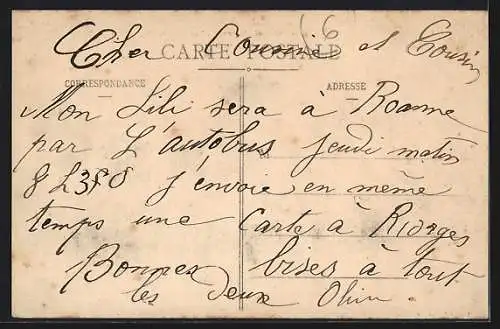 Cher Cousine et Cousin
CARTE POSTALE
CORRESPONDANCE
ADRESSE
Mon Lili sera à Roanne
par L'autobus jeudi matin
8 J'envoie en même
temps une carte à Riorges
Bonnes bises à tout
les deux